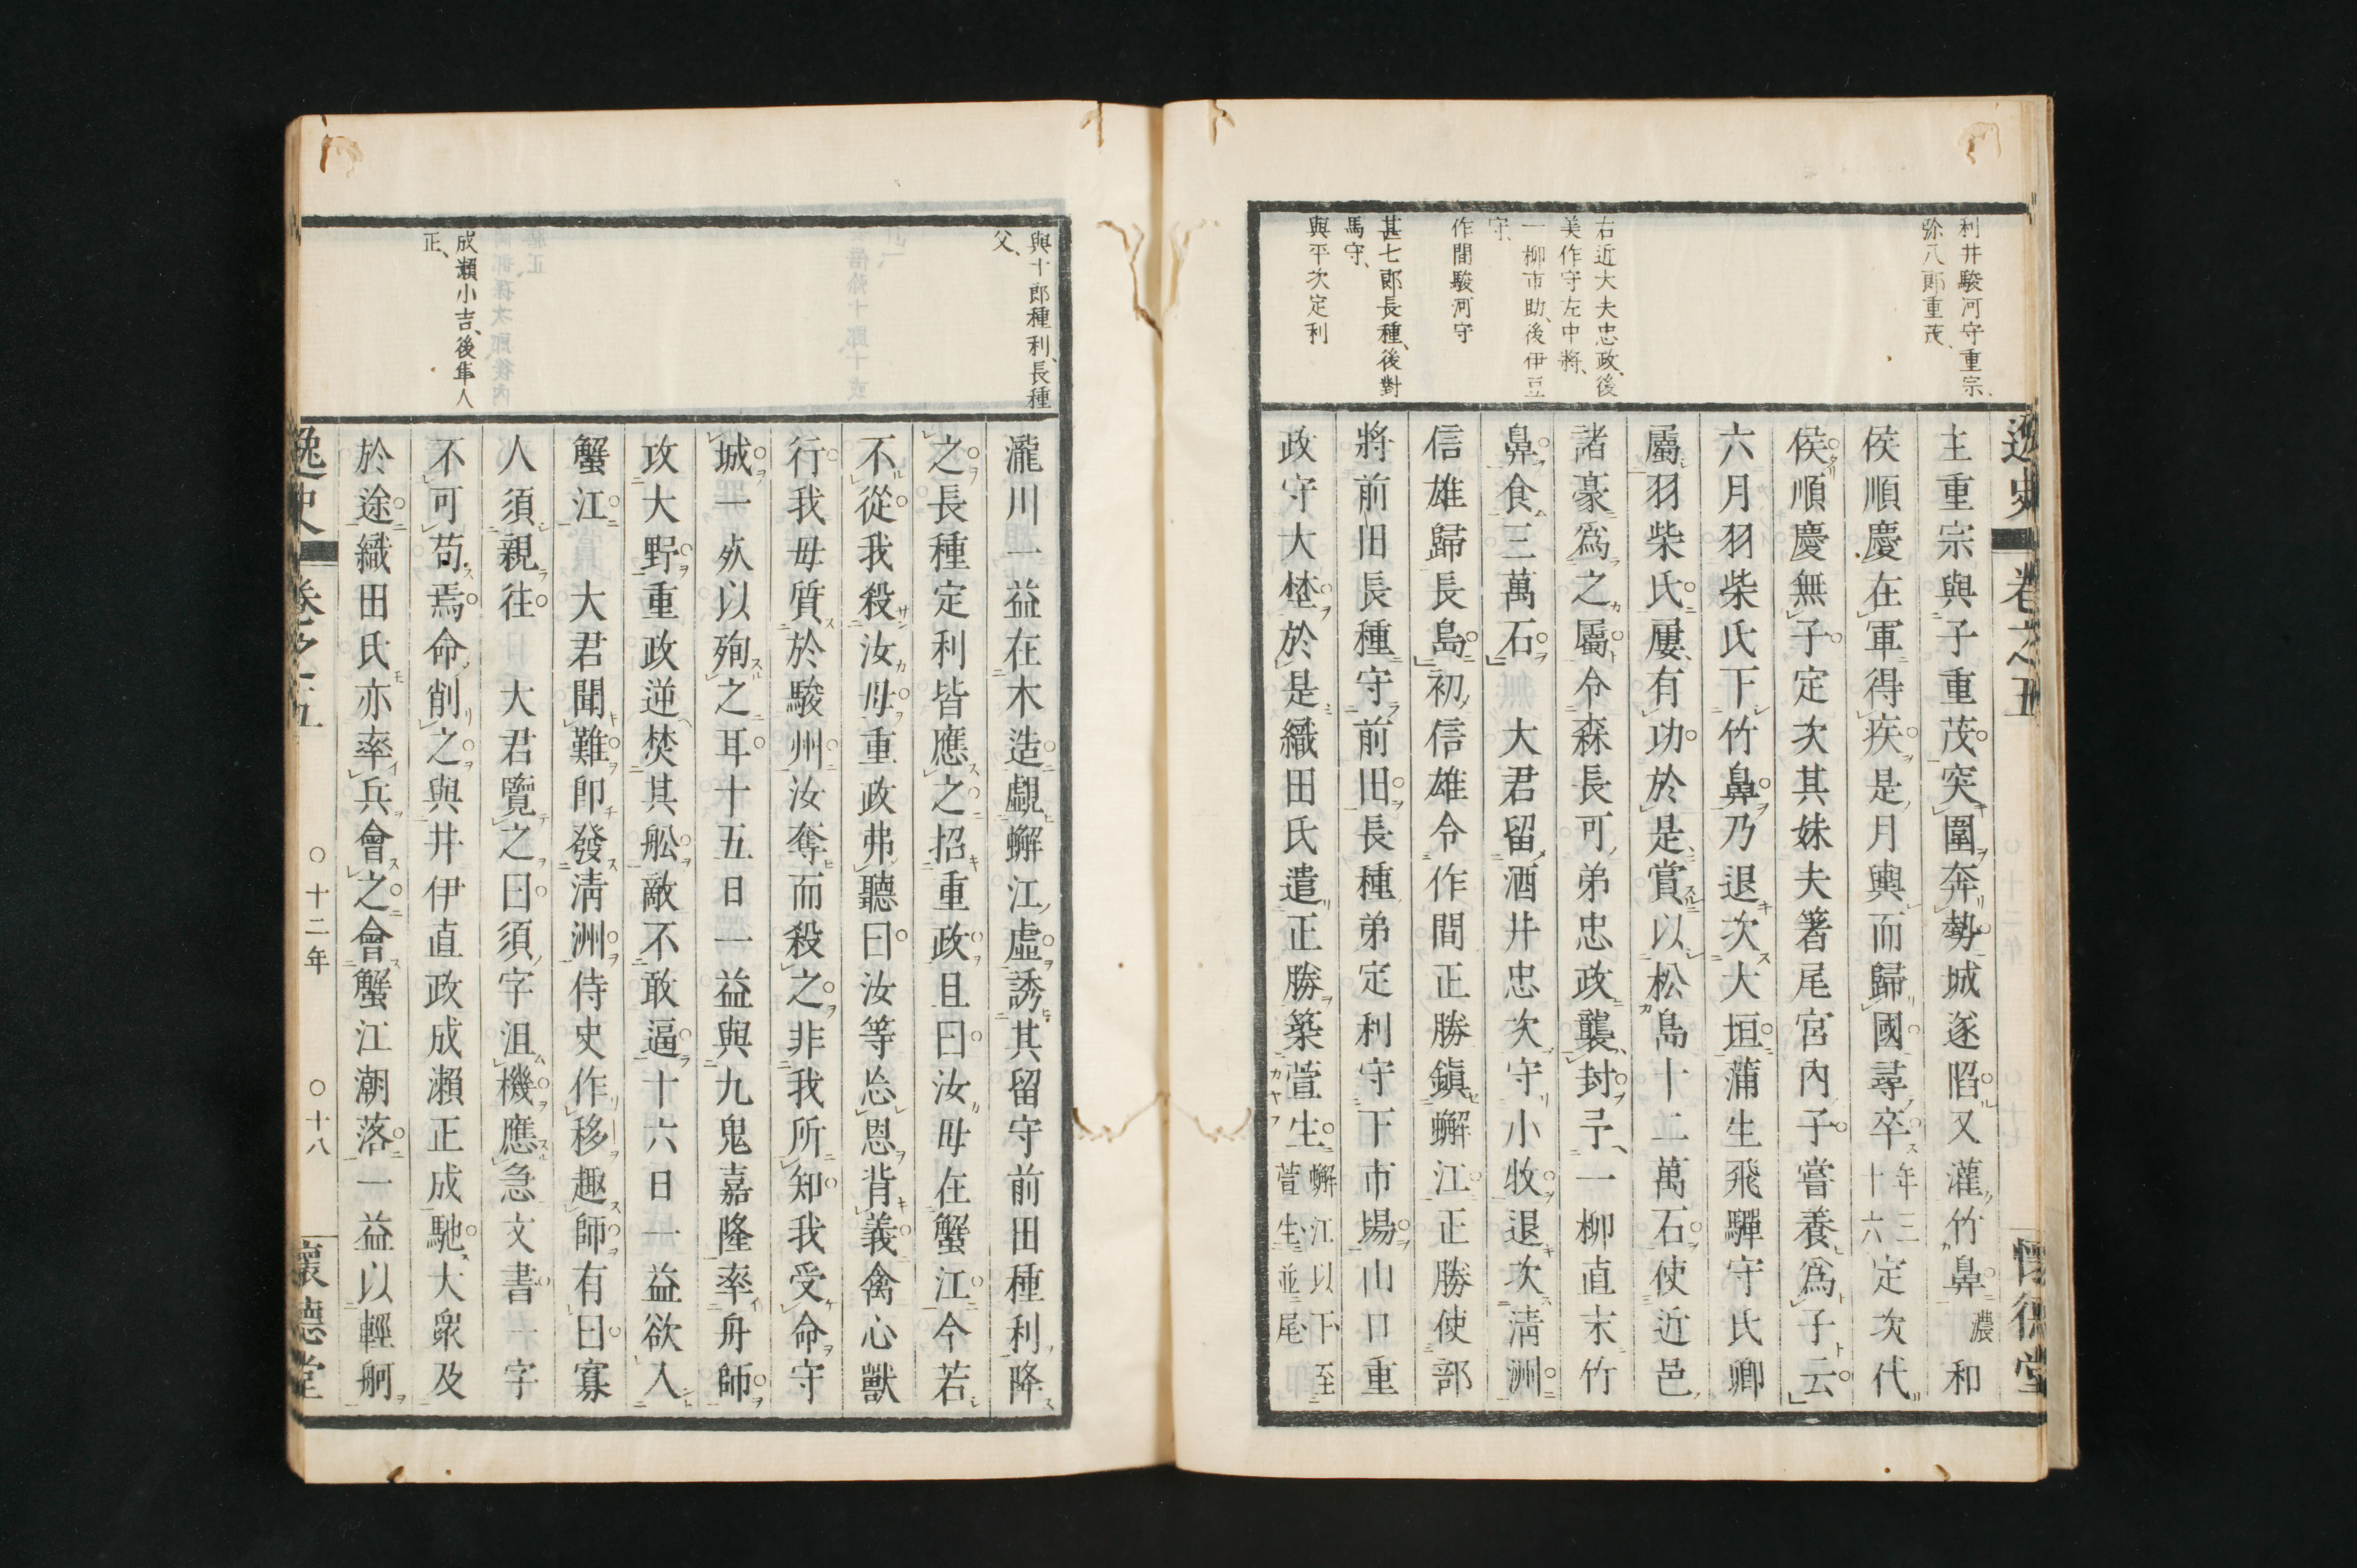 利井駿河守重宗、
弥八郎重茂、
右近大夫忠政、後
美作守左中將、
一柳市助、後伊豆
守、
作間駿河守
甚七郎長種、後對
馬守、
與平次定利
逸史 卷之五
主重宗與子重茂突圍奔勢城遂陷又灌竹鼻濃和
侯順慶在軍得疾是月輿而歸國尋卒年三十六定次代
侯順慶無子定次其妹夫箸尾宮內子嘗養爲子云
六月羽柴氏下竹鼻乃退次大垣蒲生飛驒守氏鄉
屬羽柴氏屢有功於是賞以松島十二萬石使近邑
諸豪爲之屬令森長可弟忠政襲封予一柳直末竹
鼻食三萬石 大君留酒井忠次守小牧退次淸洲
信雄歸長島初信雄令作間正勝鎭蠏江正勝使部
將前田長種守前田長種弟定利守下市場山口重
政守大埜於是織田氏遣正勝築萱生蠏江以下至萱生並尾
與十郎種利、長種
父、
成瀨小吉、後隼人
正、
瀧川一益在木造覷蠏江虛誘其留守前田種利降
之長種定利皆應之招重政且曰汝母在蟹江今若
不從我殺汝母重政弗聽曰汝等忘恩背義禽心獸
行我母質於駿州汝奪而殺之非我所知我受命守
城一死以殉之耳十五日一益與九鬼嘉隆率舟師
攻大野重政逆焚其舩敵不敢逼十六日一益欲入
蟹江 大君聞難卽發淸洲侍史作移趣師有曰寡
人須親往 大君覽之曰須字沮機應急文書一字
不可苟焉命削之與井伊直政成瀨正成馳大衆及
於途織田氏亦率兵會之會蟹江潮落一益以輕舸
逸史 卷之五 ○十二年 ○十八 懷德堂